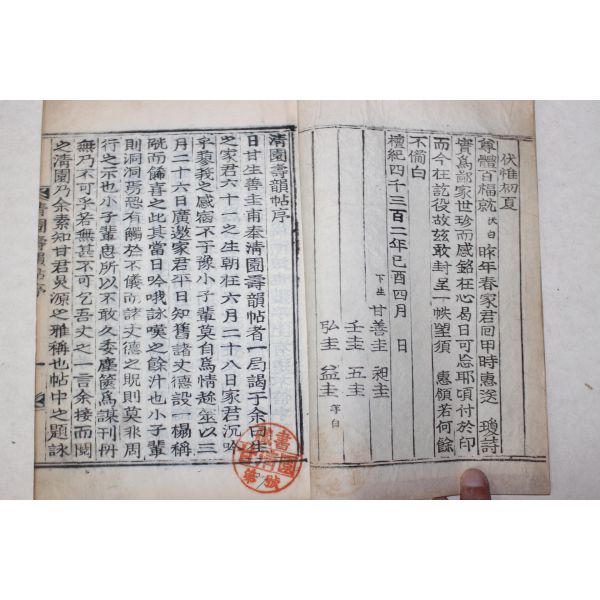 伏惟初夏
尊體百福就伏白昨年春家君回甲時惠送瓊詩
實爲鄙家世珍而感銘在心曷日可忘耶頃付於印
而今在訖役故玆敢封呈一帙望須惠領若何餘
不備白
檀紀四千三百二年己酉四月 日
下生 甘善圭 昶圭
壬圭 五圭
弘圭 益圭 等白
清園壽韻帖序
日甘生善圭甫奉清園壽韻帖者一局謁于余曰生
之家君六十一之生朝在六月二十八日家君沉吟
乎蓼莪之感宿不于豫小子輩莫自爲情趁筮以三
月二十六日廣邀家君平日知舊諸丈德設一榻稱
觥而飾喜之此其當日吟哦詠嘆之餘汁也小子輩
則洞洞焉恐有觸於不儀而諸丈德之貺則莫非周
行之示也小子輩患所以不敢久委塵篋爲謀刊冊
無乃不可乎若無甚不可乞吾丈之一言余接而閱
之清園乃余素知甘君吳源之雅稱也帖中之題詠
清園壽韻帖序
一